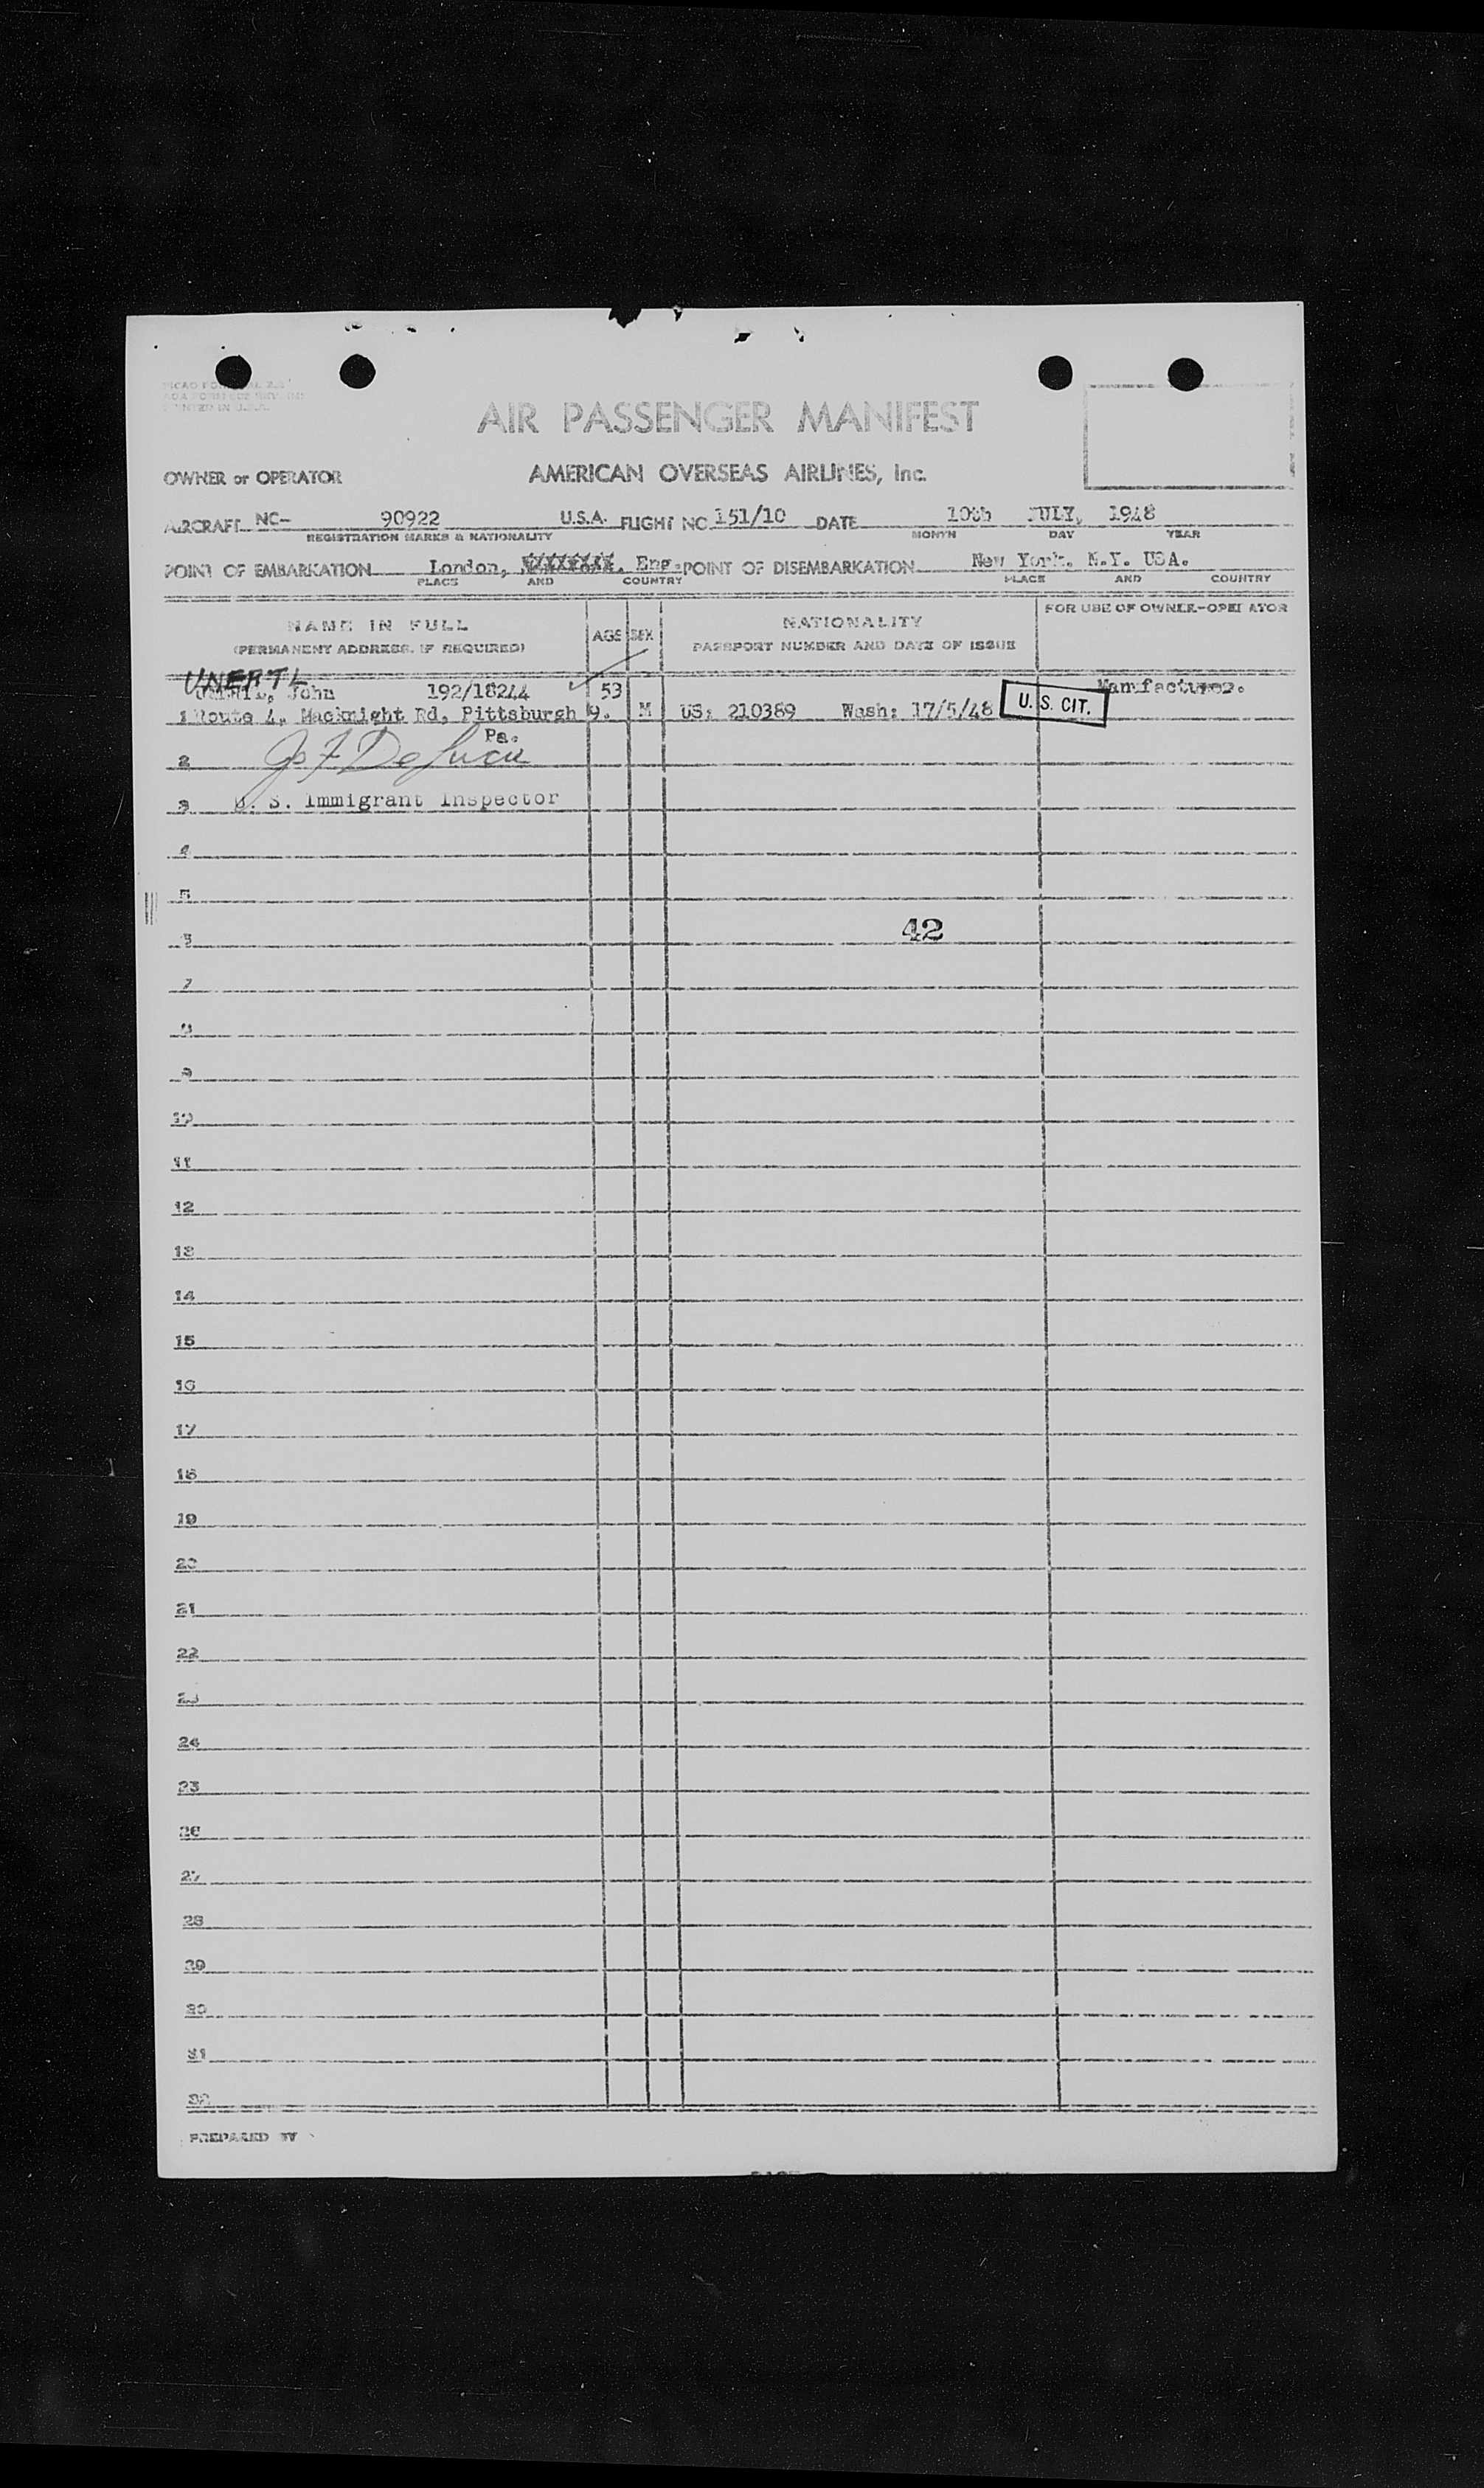 AIR PASSENGER MANIFEST
OWNER or OPERATOR AMERICAN OVERSEAS AIRLINES, Inc.
AIRCRAFT NC- 90922 U.S.A. FLIGHT NO 151/10 DATE 10th JULY, 1948
REGISTRATION MARKS & NATIONALITY MONTH DAY YEAR
POINT OF EMBARKATION London, Eng. POINT OF DISEMBARKATION New York. N.Y. USA.
PLACE AND COUNTRY PLACE AND COUNTRY
NAME IN FULL AGE SEX NATIONALITY FOR USE OF OWNER-OPERATOR
(PERMANENT ADDRESS, IF REQUIRED) PASSPORT NUMBER AND DATE OF ISSUE
UNERTL
John 192/18244 53 Manufacturer.
1 Route 4, Macknight Rd, Pittsburgh 9. M US: 210389 Wash: 17/5/48 U.S. CIT.
Pa.
2 Jo F. DeLucca
3 U. S. Immigrant Inspector
4
5
6 42
7
8
9
10
11
12
13
14
15
16
17
18
19
20
21
22
23
24
25
26
27
28
29
30
31
32
PREPARED BY